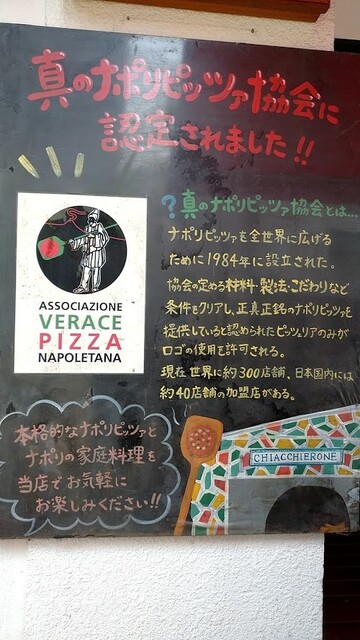 真のナポリピッツァ協会に
認定されました!!
ASSOCIAZIONE
VERACE
PIZZA
NAPOLETANA
?真のナポリピッツァ協会とは...
ナポリピッツァを全世界に広げる
ために1984年に設立された。
協会の定める材料・製法・こだわりなど
条件をクリアし、正真正銘のナポリピッツァを
提供していると認められたピッツェリアのみが
ロゴの使用を許可される。
現在世界に約300店舗、日本国内には
約40店舗の加盟店がある。
本格的なナポリピッツァと
ナポリの家庭料理を
当店でお気軽に
お楽しみください!!
CHIACCHIERONE